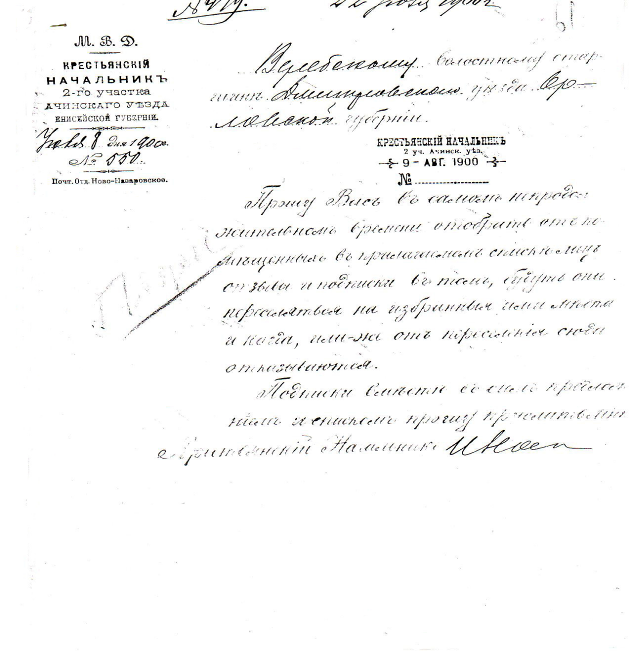 № 419.
М. В. Д.
КРЕСТЬЯНСКІЙ
НАЧАЛЬНИКЪ
2-ГО УЧАСТКА
АЧИНСКАГО УѢЗДА
ЕНИСЕЙСКОЙ ГУБЕРНІИ.
8 дня 1900.
№ 550.
Почт. Отд. Ново-Назаровское.
Веребскому волостному стар-
шинѣ Дмитровскаго уѣзда Ор-
ловской губерніи.
КРЕСТЬЯНСКІЙ НАЧАЛЬНИКЪ
2 уч. Ачинск. уѣз.
9 - АВГ. 1900
№
Прошу Васъ въ самомъ непродол
жительномъ времени отобрать отъ по
мѣщенныхъ въ прилагаемомъ спискѣ лицъ
отзывы и подписки въ томъ, будутъ они
переселяться на избранныя ими мѣста
и когда, или-же отъ переселенія сюда
отказываются.
Подписки вмѣстѣ съ симъ предлож
ніемъ и спискомъ прошу
Крестьянскій Начальникъ